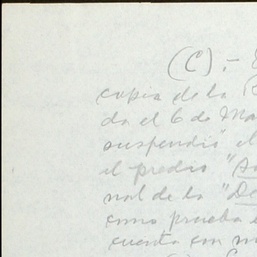 (C).-
copia de la
da el 6 de Ma
suspendió el
el predio "
nal de la "De
como prueba
cuenta con